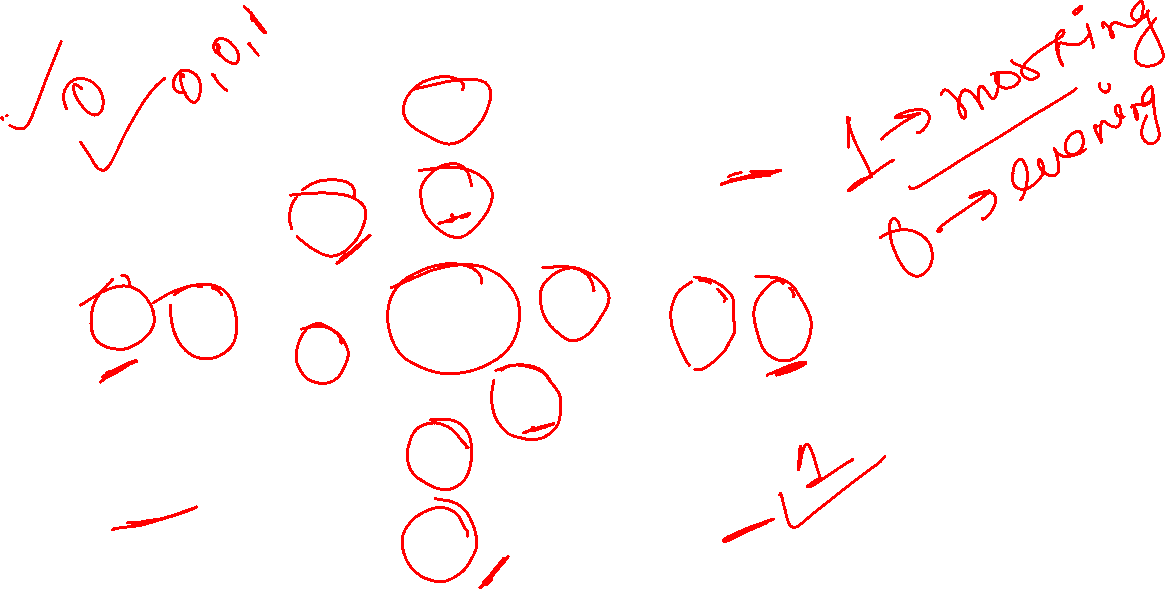 0
0,0,1
1 → morning
0 → evening
1